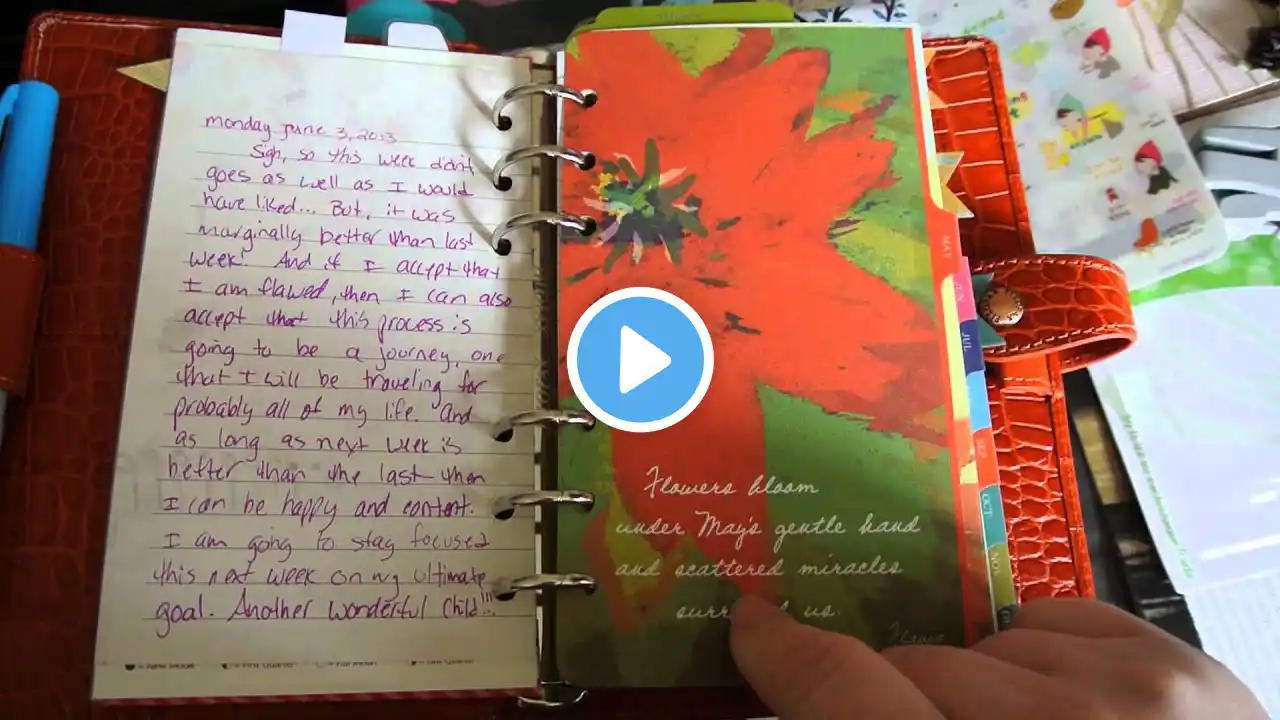 monday June 3, 2013
Sigh, so this week didn't
goes as well as I would
have liked... But, it was
marginally better than last
week! And if I accept that
I am flawed, then I can also
accept that this process is
going to be a journey, one
that I will be traveling for
probably all of my life. And
as long as next week is
better than the last then
I can be happy and content.
I am going to stay focused
this next week on my ultimate
goal. Another Wonderful Child!!!
Flowers bloom
under May's gentle hand
and scattered miracles
us.
MAY
JUN
JUL
SEP
OCT
NOV